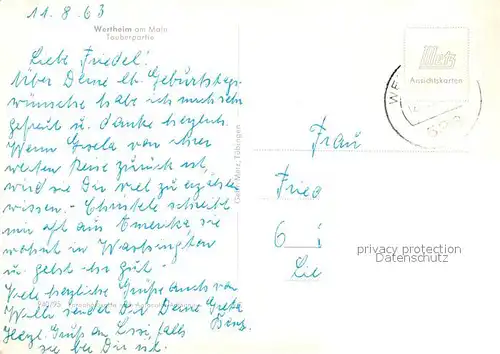 11.8.63
Wertheim am Main
Tauberpartie
Liebe Friedel!
Über Deine lb. Geburtstags-
wünsche habe ich mich sehr
gefreut u. danke herzlich.
Wenn Gisela von ihrer
weiten Reise zurück ist,
wird sie Dir viel zu erzählen
wissen. - Christele schreibt
mir oft aus Amerika sie
wohnt in Washington
u. geht ihr gut -
Viele herzliche Grüße auch von
Willi sendet Dir Deine Greta
Herzl. Gruß an Lissi, falls
sie bei Dir ist.
Gebr. Metz, Tübingen
Metz
Ansichtskarten
WE
Frau
Fried
6
privacy protection
Datenschutz